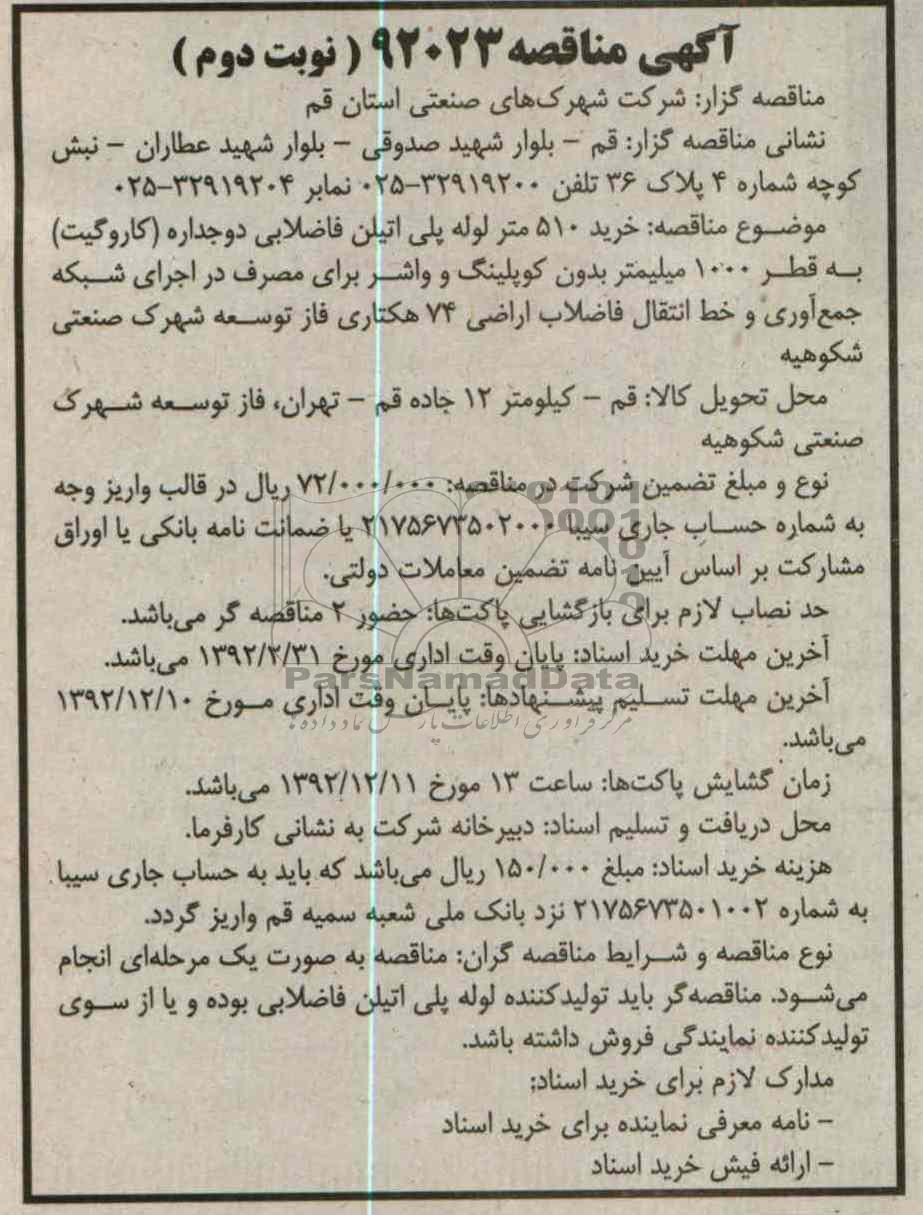 آگهی مناقصه ۹۲۰۲۳ ( نوبت دوم )
مناقصه گزار: شرکت شهرک‌های صنعتی استان قم
نشانی مناقصه گزار: قم – بلوار شهید صدوقی – بلوار شهید عطاران – نبش
کوچه شماره ۴ پلاک ۳۶ تلفن ۳۲۹۱۹۲۰۰-۰۲۵ نمابر ۳۲۹۱۹۲۰۴-۰۲۵
موضوع مناقصه: خرید ۵۱۰ متر لوله پلی اتیلن فاضلابی دوجداره (کاروگیت)
به قطر ۱۰۰۰ میلیمتر بدون کوپلینگ و واشر برای مصرف در اجرای شبکه
جمع‌آوری و خط انتقال فاضلاب اراضی ۷۴ هکتاری فاز توسعه شهرک صنعتی
شکوهیه
محل تحویل کالا: قم – کیلومتر ۱۲ جاده قم – تهران، فاز توسعه شهرک
صنعتی شکوهیه
نوع و مبلغ تضمین شرکت در مناقصه: ۷۲/۰۰۰/۰۰۰ ریال در قالب واریز وجه
به شماره حساب جاری سیبا ۲۱۷۵۶۷۳۵۰۲۰۰۰ یا ضمانت نامه بانکی یا اوراق
مشارکت بر اساس آیین نامه تضمین معاملات دولتی.
حد نصاب لازم برای بازگشایی پاکت‌ها: حضور ۲ مناقصه گر می‌باشد.
آخرین مهلت خرید اسناد: پایان وقت اداری مورخ ۱۳۹۲/۲/۳۱ می‌باشد.
ParsNamadData
آخرین مهلت تسلیم پیشنهادها: پایان وقت اداری مورخ ۱۳۹۲/۱۲/۱۰
می‌باشد.
زمان گشایش پاکت‌ها: ساعت ۱۳ مورخ ۱۳۹۲/۱۲/۱۱ می‌باشد.
محل دریافت و تسلیم اسناد: دبیرخانه شرکت به نشانی کارفرما.
هزینه خرید اسناد: مبلغ ۱۵۰/۰۰۰ ریال می‌باشد که باید به حساب جاری سیبا
به شماره ۲۱۷۵۶۷۳۵۰۱۰۰۲ نزد بانک ملی شعبه سمیه قم واریز گردد.
نوع مناقصه و شرایط مناقصه گران: مناقصه به صورت یک مرحله‌ای انجام
می‌شود. مناقصه‌گر باید تولیدکننده لوله پلی اتیلن فاضلابی بوده و یا از سوی
تولیدکننده نمایندگی فروش داشته باشد.
مدارک لازم برای خرید اسناد:
– نامه معرفی نماینده برای خرید اسناد
– ارائه فیش خرید اسناد